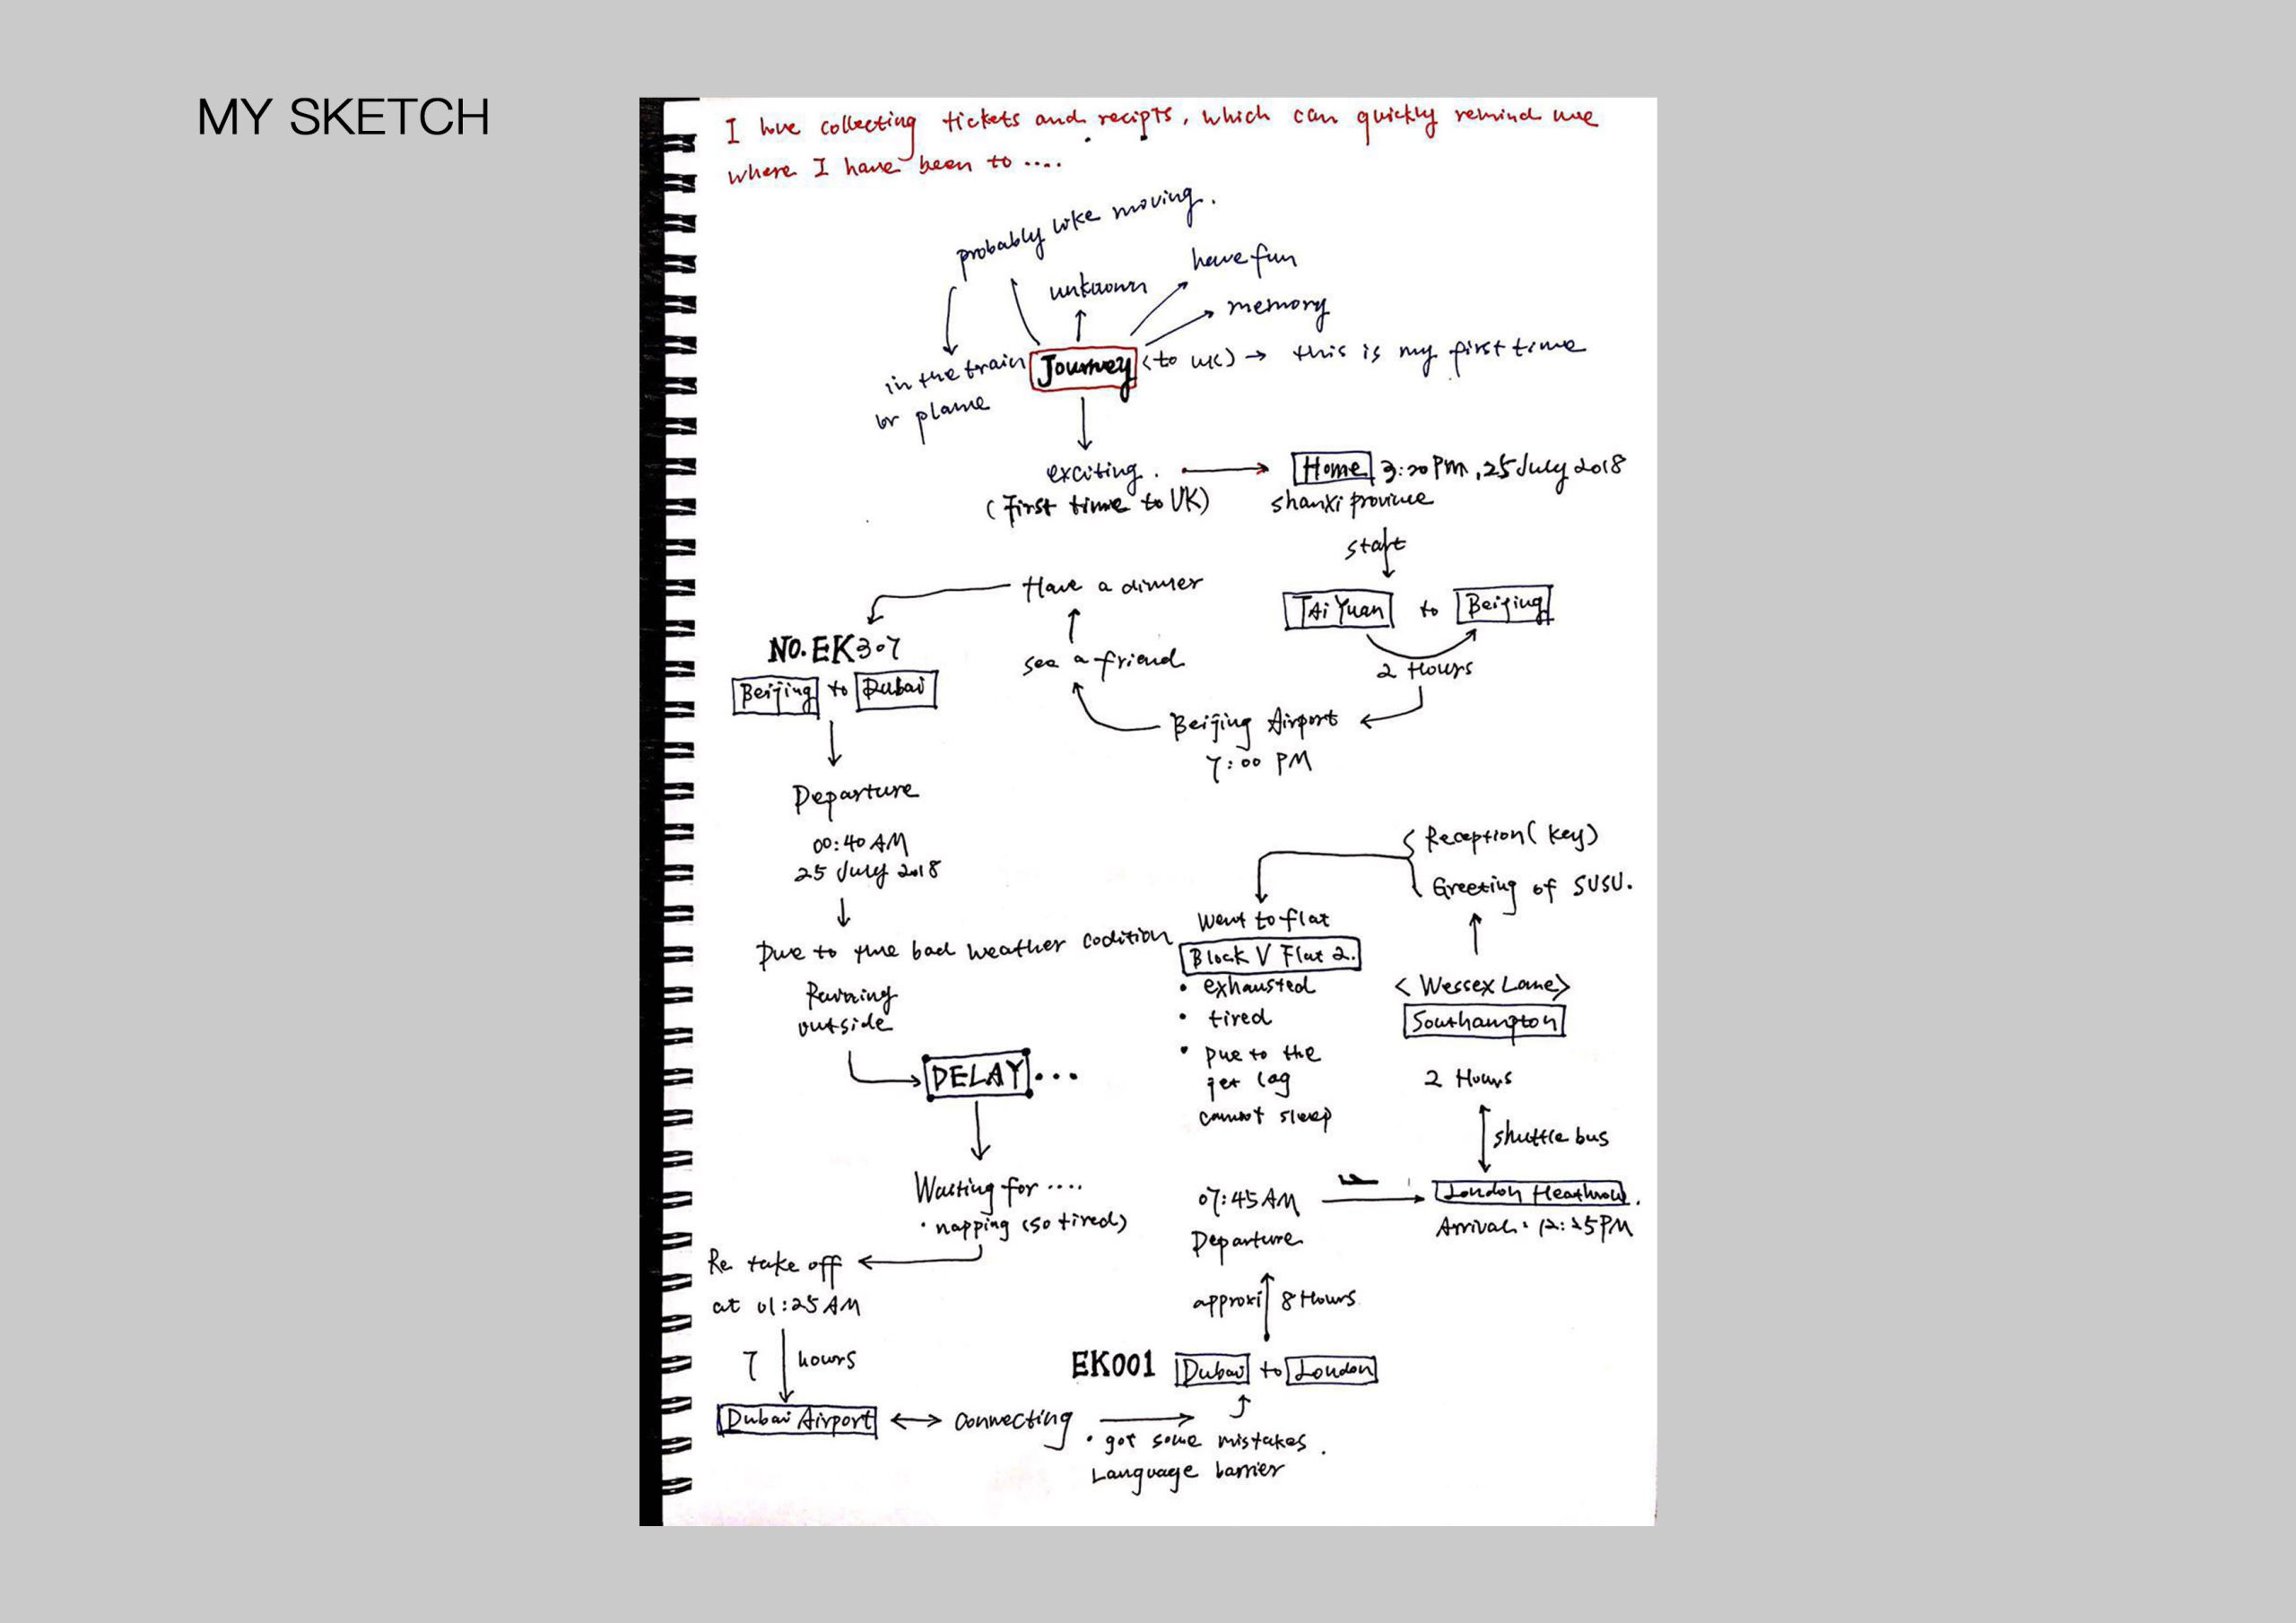 MY SKETCH
I love collecting tickets and recipts, which can quickly remind me
where I have been to ....
probably like moving.
unknown
have fun
memory
in the train
or plane
Journey (to UK) → this is my first time
exciting.
(First time to UK)
Home 3:20 PM, 25 July 2018
shanxi province
start
TAi Yuan to Beijing
2 Hours
Beijing Airport
7:00 PM
see a friend
Have a dinner
NO. EK307
Beijing to Dubai
Departure
00:40 AM
25 July 2018
Due to the bad weather codition
Raining
outside
DELAY...
Waiting for ....
• napping (so tired)
Re take off
at 01:25 AM
7 hours
Dubai Airport ↔ Connecting
• got some mistakes.
Language barrier
EK001 Dubai to London
approxi 8 Hours
07:45 AM
Departure
London Heathrow.
Arrival: 12:25 PM
shuttle bus
2 Hours
Southampton
<Wessex Lane>
Reception (key)
Greeting of SUSU.
Went to flat
Block V Flat 2.
• exhausted
• tired
• Due to the
jet lag
cannot sleep